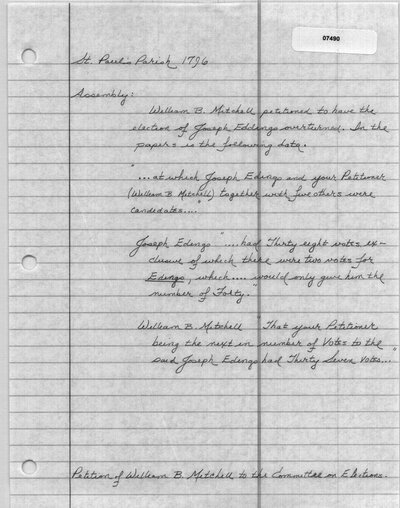 07490
St. Paul's Parish 1796
Assembly:
William B. Mitchell petitioned to have the
election of Joseph Eddengo overturned. In the
papers is the following data.
"...at which Joseph Edingo and your Petitioner
(William B. Mitchell) together with five others were
candidates...."
Joseph Edingo "...had Thirty eight votes ex-
clusive of which there were two votes for
Edengo, which.... would only give him the
number of Forty."
William B. Mitchell "That your Petitioner
being the next in number of Votes to the
said Joseph Edengo had Thirty Seven Votes..."
Petition of William B. Mitchell to the Committee on Elections.